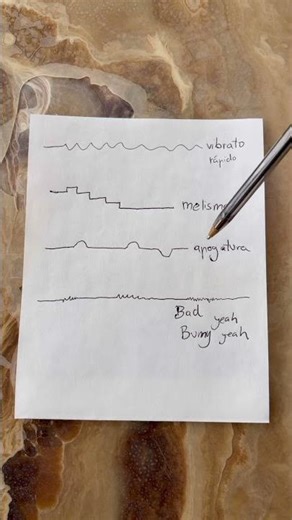 vibrato
rápido
melisma
apogatura
Bad yeah
Bunny yeah